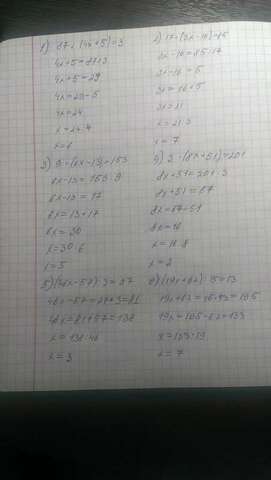 1) 87 : (4x+5)=3
4x+5=87:3
4x+5=29
4x=29-5
4x=24
x=24:4
x=6
2) 17·(3x-16)=85
3x-16=85:17
3x-16=5
3x=16+5
3x=21
x=21:3
x=7
3) 9·(6x-13)=153
6x-13=153:9
6x-13=17
6x=13+17
6x=30
x=30:6
x=5
4) 3·(8x+51)=201
8x+51=201:3
8x+51=67
8x=67-51
8x=16
x=16:8
x=2
5) (46x-57):3=27
46x-57=27·3=81
46x=81+57=138
x=138:46
x=3
6) (19x+62):15=13
19x+62=15·13=195
19x=195-62=133
x=133:19
x=7